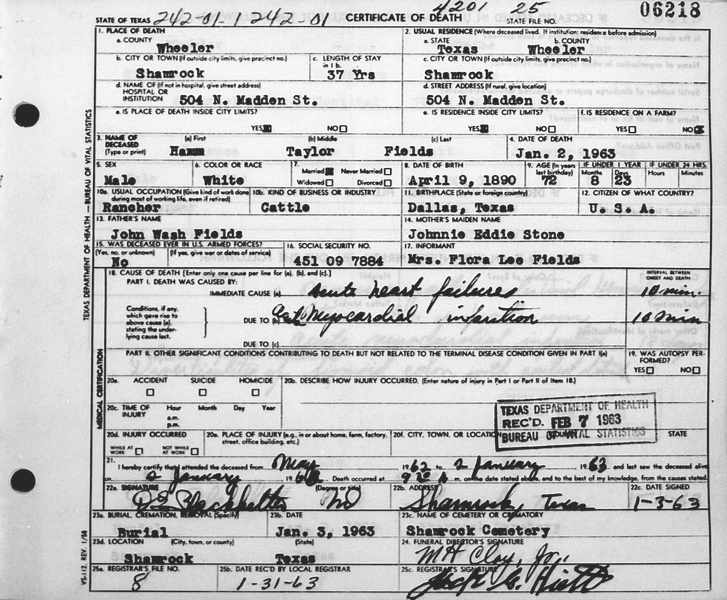 4201 25 06218
STATE OF TEXAS 242-01-1 242-01 CERTIFICATE OF DEATH STATE FILE NO.
1. PLACE OF DEATH 2. USUAL RESIDENCE (Where deceased lived. If institution: residence before admission)
a. COUNTY a. STATE b. COUNTY
Wheeler Texas Wheeler
b. CITY OR TOWN (If outside city limits, give precinct no.) c. LENGTH OF STAY in 1 b. c. CITY OR TOWN (If outside city limits, give precinct no.)
Shamrock 37 Yrs Shamrock
d. NAME OF (If not in hospital, give street address) HOSPITAL OR INSTITUTION d. STREET ADDRESS (If rural, give location)
504 N. Madden St. 504 N. Madden St.
e. IS PLACE OF DEATH INSIDE CITY LIMITS? e. IS RESIDENCE INSIDE CITY LIMITS? f. IS RESIDENCE ON A FARM?
YES NO YES NO YES NO
3. NAME OF DECEASED (Type or print) (a) First (b) Middle (c) Last 4. DATE OF DEATH
Hamm Taylor Fields Jan. 2, 1963
5. SEX 6. COLOR OR RACE 7. Married Never Married Widowed Divorced 8. DATE OF BIRTH 9. AGE (In years last birthday) IF UNDER 1 YEAR Months Days IF UNDER 24 HRS. Hours Min.
Male White April 9, 1890 72 8 23
10a. USUAL OCCUPATION (Give kind of work done during most of working life, even if retired) 10b. KIND OF BUSINESS OR INDUSTRY 11. BIRTHPLACE (State or foreign country) 12. CITIZEN OF WHAT COUNTRY?
Rancher Cattle Dallas, Texas U. S. A.
13. FATHER'S NAME 14. MOTHER'S MAIDEN NAME
John Wash Fields Johnnie Eddie Stone
15. WAS DECEASED EVER IN U.S. ARMED FORCES? (Yes, no, or unknown) (If yes, give war or dates of service) 16. SOCIAL SECURITY NO. 17. INFORMANT
No 451 09 7884 Mrs. Flora Lee Fields
18. CAUSE OF DEATH [Enter only one cause per line for (a), (b), and (c).] INTERVAL BETWEEN ONSET AND DEATH
PART I. DEATH WAS CAUSED BY:
IMMEDIATE CAUSE (a) acute heart failure 10 min.
Conditions, if any, which gave rise to above cause (a), stating the underlying cause last. DUE TO (b) Myocardial 10 min
DUE TO (c)
PART II. OTHER SIGNIFICANT CONDITIONS CONTRIBUTING TO DEATH BUT NOT RELATED TO THE TERMINAL DISEASE CONDITION GIVEN IN PART I(a) 19. WAS AUTOPSY PERFORMED?
YES NO
20a. ACCIDENT SUICIDE HOMICIDE 20b. DESCRIBE HOW INJURY OCCURRED. (Enter nature of injury in Part I or Part II of Item 18.)
20c. TIME OF INJURY Hour a.m. p.m. Month Day Year
TEXAS DEPARTMENT OF HEALTH
REC'D. FEB 7 1963
BUREAU OF VITAL STATISTICS
20d. INJURY OCCURRED WHILE AT WORK NOT WHILE AT WORK 20e. PLACE OF INJURY (e.g., in or about home, farm, factory, street, office building, etc.) 20f. CITY, TOWN, OR LOCATION COUNTY STATE
21. I hereby certify that I attended the deceased from May 1962 to 2 January 1963 and last saw the deceased alive
2 January Death occurred at m. on the date stated above, and to the best of my knowledge, from the causes stated.
22a. SIGNATURE (Degree or title) 22b. ADDRESS 22c. DATE SIGNED
MD Shamrock, Texas 1-3-63
23a. BURIAL, CREMATION, REMOVAL (Specify) 23b. DATE 23c. NAME OF CEMETERY OR CREMATORY
Burial Jan. 3, 1963 Shamrock Cemetery
23d. LOCATION (City, town, or county) (State) 24. FUNERAL DIRECTOR'S SIGNATURE
Shamrock Texas M H Clay, Jr.
25a. REGISTRAR'S FILE NO. 25b. DATE REC'D BY LOCAL REGISTRAR 25c. REGISTRAR'S SIGNATURE
8 1-31-63
TEXAS DEPARTMENT OF HEALTH — BUREAU OF VITAL STATISTICS
MEDICAL CERTIFICATION
VS-112, REV. 1/58